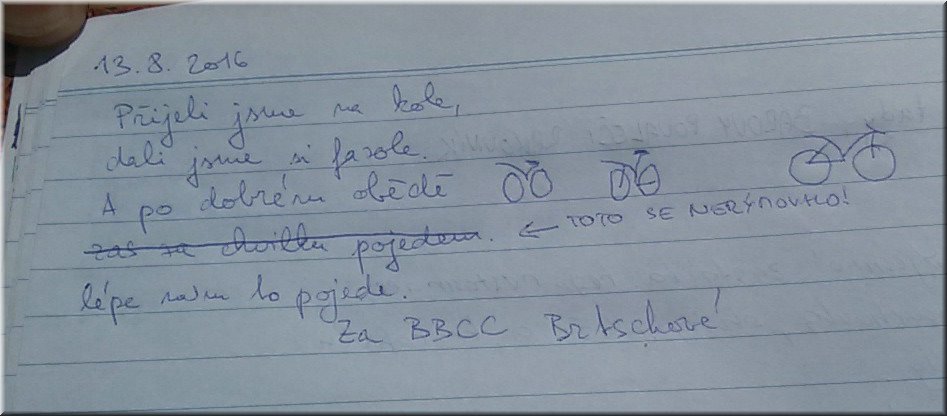 13.8.2016
Přijeli jsme na kole,
dali jsme si fazole.
A po dobrém obědě
zas za chvilku pojedem. ← TOTO SE NERÝMOVALO!
lépe nám to pojede.
Za BBCC Brtschové